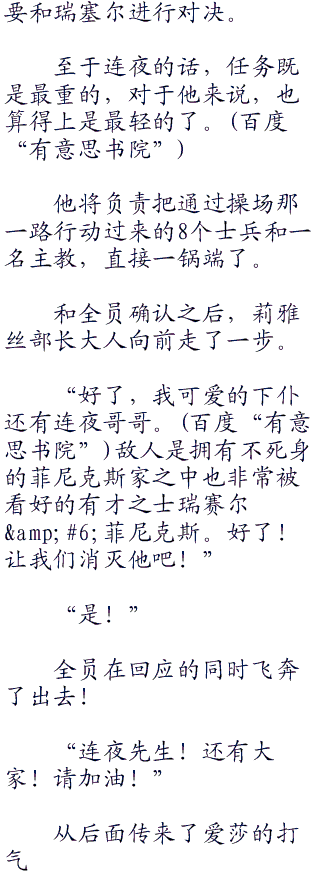 要和瑞塞尔进行对决。
至于连夜的话，任务既
是最重的，对于他来说，也
算得上是最轻的了。(百度
“有意思书院”)
他将负责把通过操场那
一路行动过来的8个士兵和一
名主教，直接一锅端了。
和全员确认之后，莉雅
丝部长大人向前走了一步。
“好了，我可爱的下仆
还有连夜哥哥。(百度“有意
思书院”)敌人是拥有不死身
的菲尼克斯家之中也非常被
看好的有才之士瑞赛尔
&amp;#6;菲尼克斯。好了！
让我们消灭他吧！”
“是！”
全员在回应的同时飞奔
了出去！
“连夜先生！还有大
家！请加油！”
从后面传来了爱莎的打
气